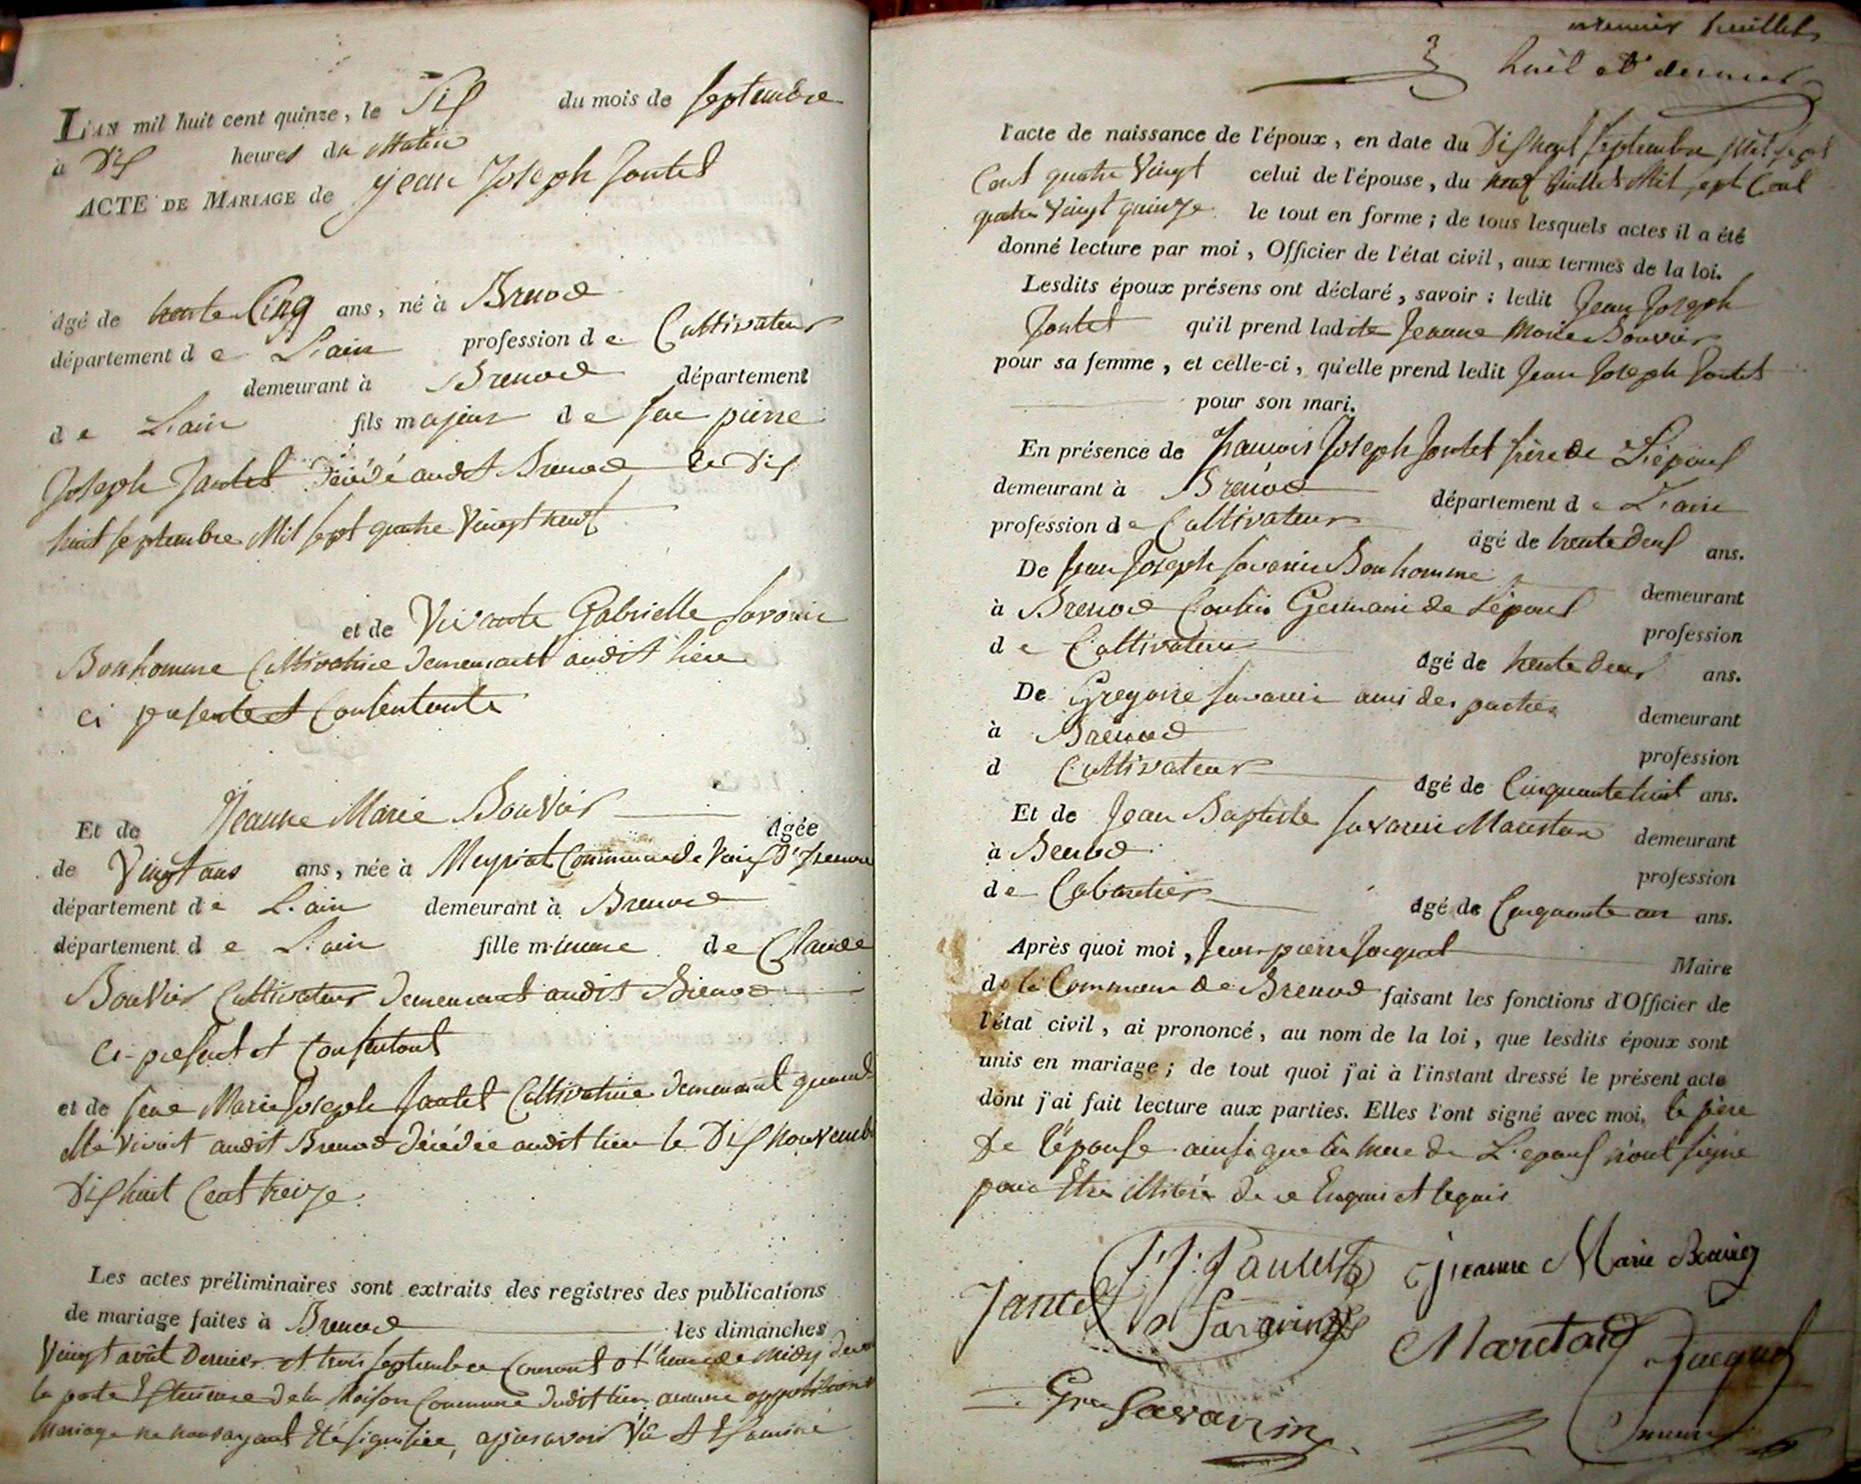 L'AN mil huit cent quinze, le Dix du mois de septembre
à Dix heures du Matin
ACTE DE MARIAGE de Jean Joseph Jantet
âgé de trente Cinq ans, né à Brenod
département de L'ain profession de Cultivateur
demeurant à Brenod département
de L'ain fils majeur de feu pierre
Joseph Jantet Décédé audit Brenod le Dix
huit septembre Mil sept quatre Vingt neuf
et de Vivante Gabrielle Savarin
Bonhomme Cultivatrice demeurant audit lieu
ci présente et Consentante
Et de Jeanne Marie Bouvier âgée
de Vingt ans ans, née à Meyriat Commune de Vieux D'Izenave
département de L'ain demeurant à Brenod
département de L'ain fille mineure de Claude
Bouvier Cultivateur demeurant audit Brenod
Ci-présent et Consentant
et de feue Marie Joseph Jantet Cultivatrice demeurant quand
elle vivoit audit Brenod décédée audit lieu le Dix novembre
Dix huit Cent treize
Les actes préliminaires sont extraits des registres des publications
de mariage faites à Brenod les dimanches
Vingt août Dernier et trois septembre Courant à l'heure de midy devant
la porte Extérieure de la Maison Commune dudit lieu aucune opposition
mariage ne nous ayant Eté signifiée, après avoir Vû et Examiné
premier feuillet
huit et dernier
l'acte de naissance de l'époux, en date du Dix neuf septembre Mil sept
Cent quatre Vingt celui de l'épouse, du neuf Juillet Mil sept Cent
quatre Vingt quinze le tout en forme ; de tous lesquels actes il a été
donné lecture par moi, Officier de l'état civil, aux termes de la loi.
Lesdits époux présens ont déclaré, savoir : ledit Jean Joseph
Jantet qu'il prend ladite Jeanne Marie Bouvier
pour sa femme, et celle-ci, qu'elle prend ledit Jean Joseph Jantet
pour son mari.
En présence de françois Joseph Jantet frère de L'époux
demeurant à Brenod département de L'ain
profession de Cultivateur âgé de trente deux ans.
De Jean Joseph Savarin Bonhomme demeurant
à Brenod Cousin Germain de L'époux profession
de Cultivateur âgé de trente deux ans.
De Gregoire Savarin ami des parties demeurant
à Brenod profession
d Cultivateur âgé de Cinquante huit ans.
Et de Jean Baptiste Savarin Maretan demeurant
à Brenod profession
de Cabaretier âgé de Cinquante un ans.
Après quoi moi, Jean pierre Jacquet Maire
de la Commune de Brenod faisant les fonctions d'Officier de
l'état civil, ai prononcé, au nom de la loi, que lesdits époux sont
unis en mariage ; de tout quoi j'ai à l'instant dressé le présent acte
dont j'ai fait lecture aux parties. Elles l'ont signé avec moi, le père
de l'épouse ainsi que la mere de L'epoux n'ont signé
pour Etre illitérés de ce Enquis et requis
J. J. Jantet Jeanne Marie Bouvier
Jantet Savarin
Gre Savarin
Jacquet